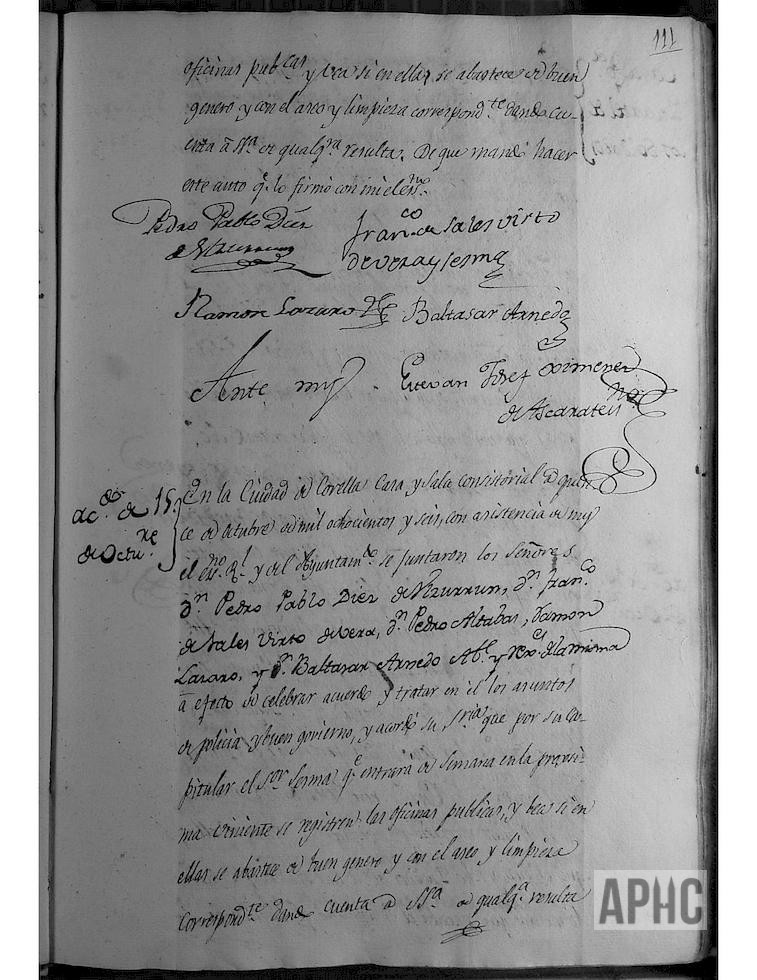 111
oficinas pub.cas y vea si en ellas se abastece de buen
genero y con el aseo y limpieza correspond.te dando cu-
enta â SSª de qualq.ra resulta. De que mandô hacer
este auto q.e lo firmô con mi el es.no
Pedro Pablo Diez
de Uzurrun
Fran.co de Sales Virto
de Vera y Lesma
Ramon Lazaro
Baltasar Arnedo
Ante mi
Estevan Josef Ximenez
de Ascarateis
ac.do de 15
de Octu.re
En la Ciudad de Corella Casa y Sala consistorial â quin-
ce de Octubre de mil ochocientos y seis, con asistencia de my
el es.no R.l y del Ayuntam.to se juntaron los Señores
D.n Pedro Pablo Diez de Uzurrun, D.n Fran.co
de Sales Virto de Vera, D.n Pedro Altabas, Ramon
Lazaro, y D.n Baltasar Arnedo Al.e y Rex.es de la misma
â efecto de celebrar acuerdo y tratar en el los asuntos
de policia y buen govierno, y acordô su S.ria que por su Ca-
pitular el S.or Lesma q.e entrará de Semana en la proxi-
ma viniente se registren las oficinas publicas, y vea si en
ellas se abastece de buen genero y con el aseo y limpieza
correspond.te dando cuenta â SSª de qualq.ª resulta
APHC